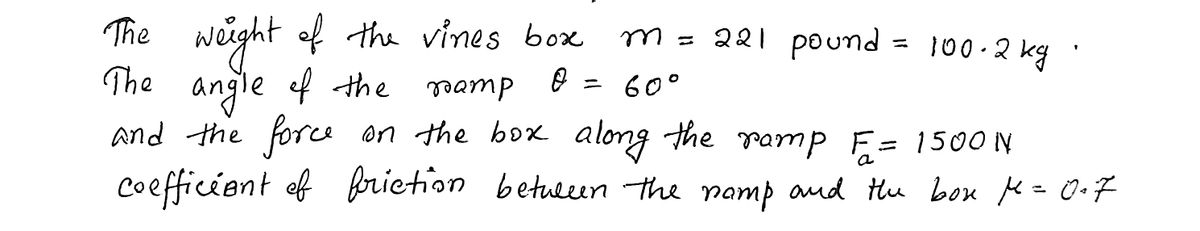 The weight of the vines box m = 221 pound = 100.2 kg.
The angle of the ramp θ = 60°
and the force on the box along the ramp Fa = 1500 N
coefficient of friction between the ramp and the box μ = 0.7